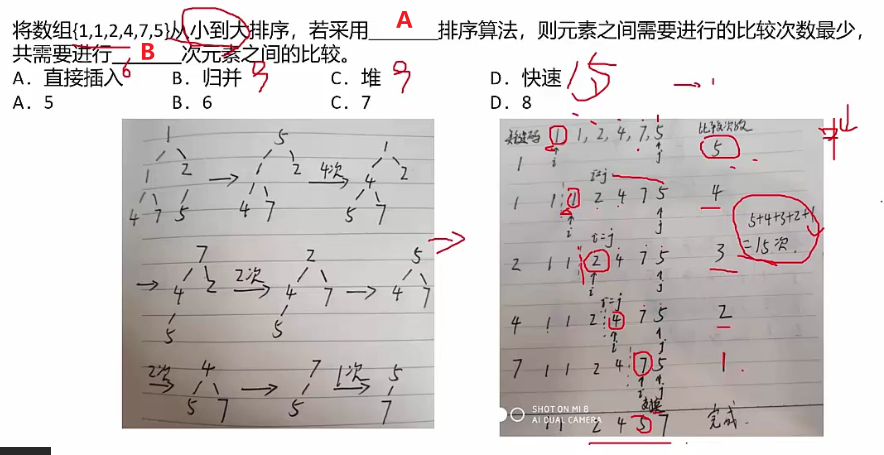 将数组{1,1,2,4,7,5}从小到大排序，若采用 A 排序算法，则元素之间需要进行的比较次数最少，
共需要进行 B 次元素之间的比较。
A．直接插入 6 B．归并 9 C．堆 9 D．快速 15
A．5 B．6 C．7 D．8
1
1 2
4 7 5
5
1 2
4 7
4次
1
4 2
5 7
7
4 2
5
2次
2
4 7
5
5
4 7
2次
4
5 7
7
5
1次
5
7
1 1, 2, 4, 7, 5 比较次数
1 i j 5
i=j
1 1 1 2 4 7 5 4
i j
i=j
2 1 1 2 4 7 5 3
i j
i=j
4 1 1 2 4 7 5 2
i j
7 1 1 2 4 7 5 1
i j
交换
1 1 2 4 5 7 完成.
5+4+3+2+1
=15次.
SHOT ON MI 8
AI DUAL CAMERA